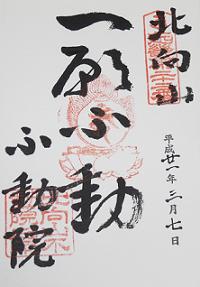 北向山
平成廿一年三月七日
一願不動
不動院